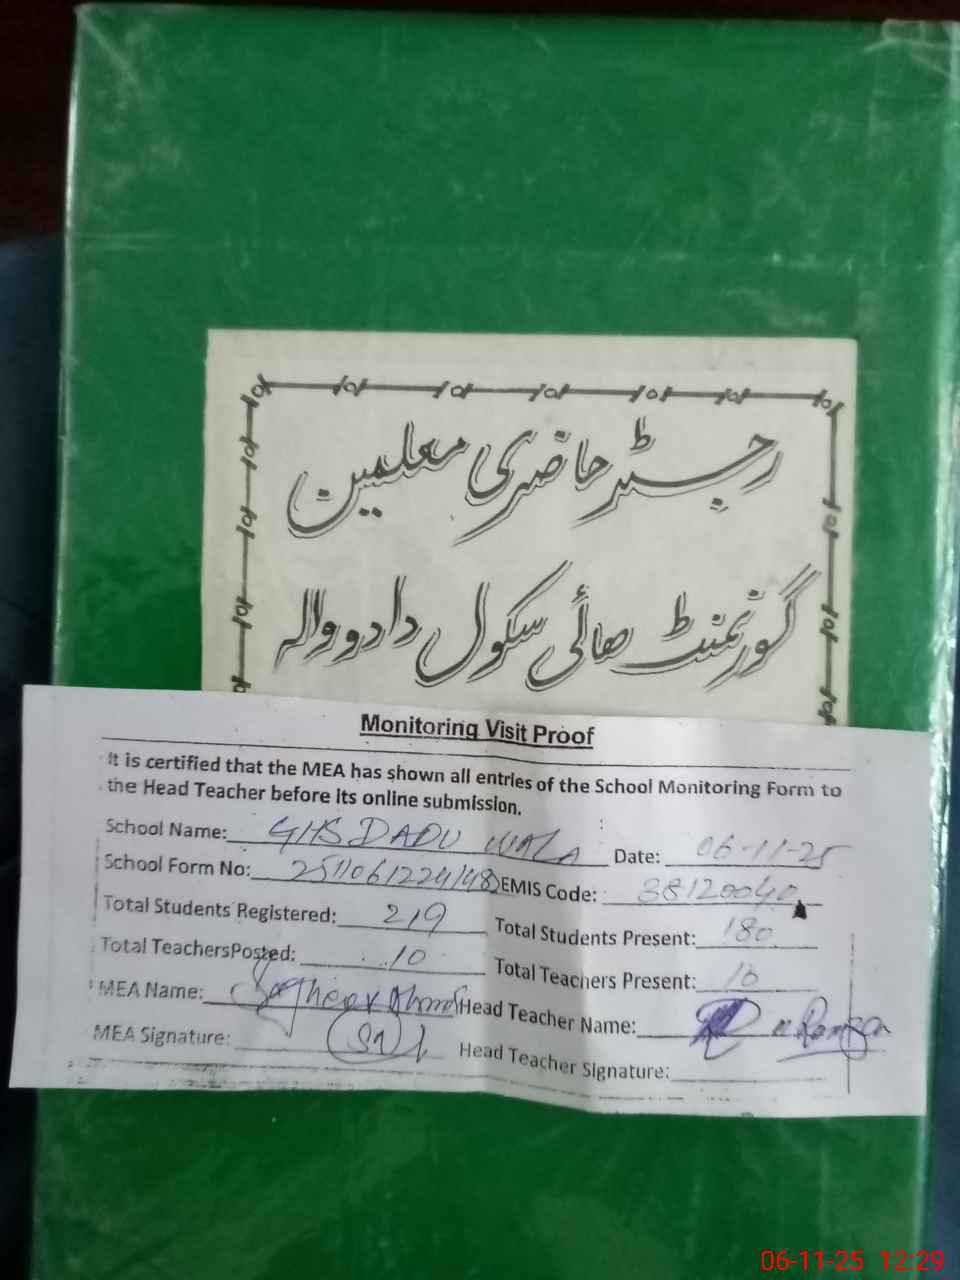 رجسٹر حاضری معلمین
گورنمنٹ ھائی سکول دادووالہ
Monitoring Visit Proof
It is certified that the MEA has shown all entries of the School Monitoring Form to
the Head Teacher before its online submission.
School Name: GHS DADU WALA Date: 06-11-25
School Form No: EMIS Code: 38120040
Total Students Registered: 219 Total Students Present: 180
Total TeachersPosted: 10 Total Teachers Present: 10
MEA Name: Head Teacher Name:
MEA Signature: Head Teacher Signature:
06-11-25 12:29